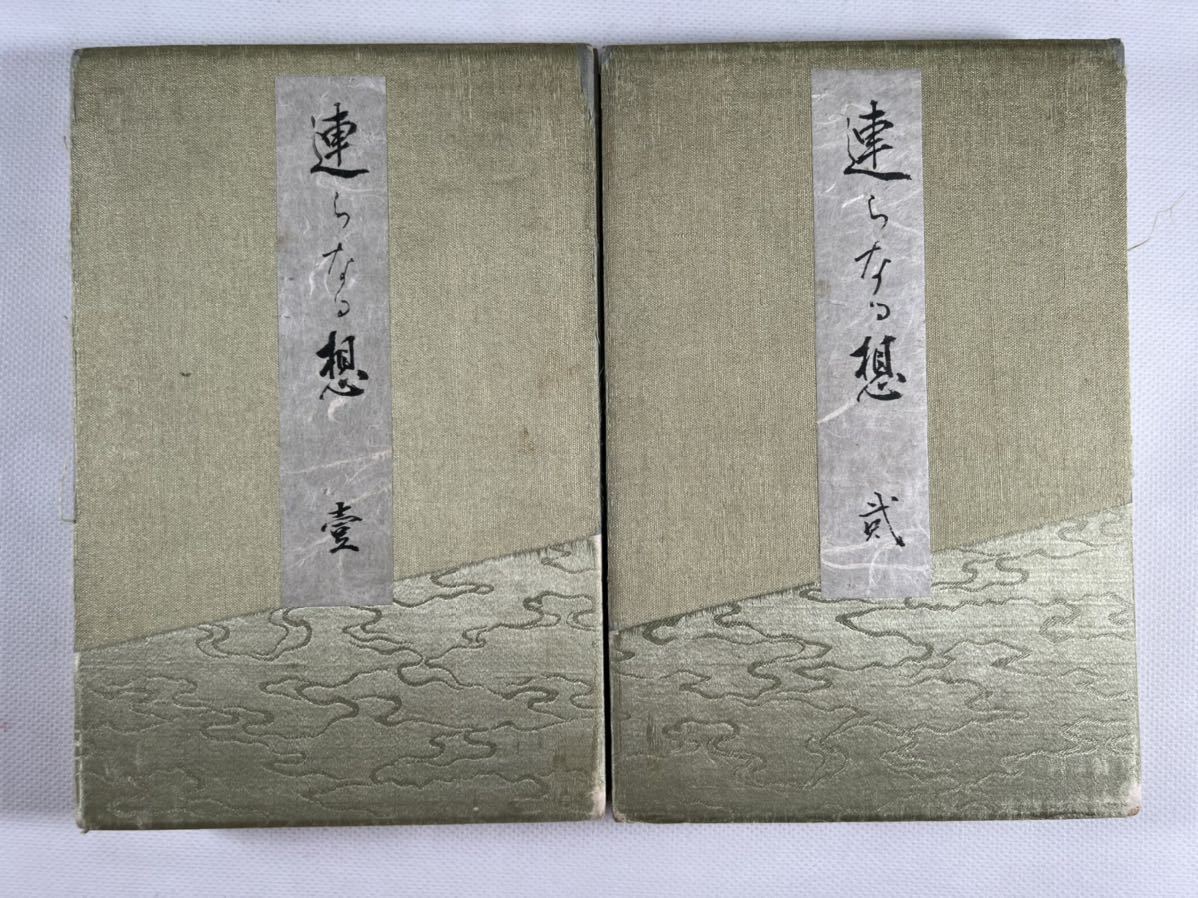 連らなる想 壹
連らなる想 貳